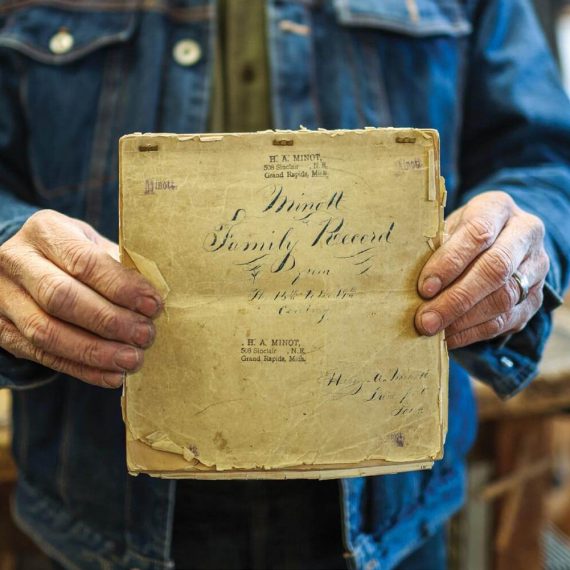 H. A. MINOT,
508 Sinclair , N. E.
Grand Rapids, Mich.
Minott
Minott
Family Record
From
The 14th to the 19th
Century
H. A. MINOT,
508 Sinclair , N. E.
Grand Rapids, Mich.
Henry A. Minott